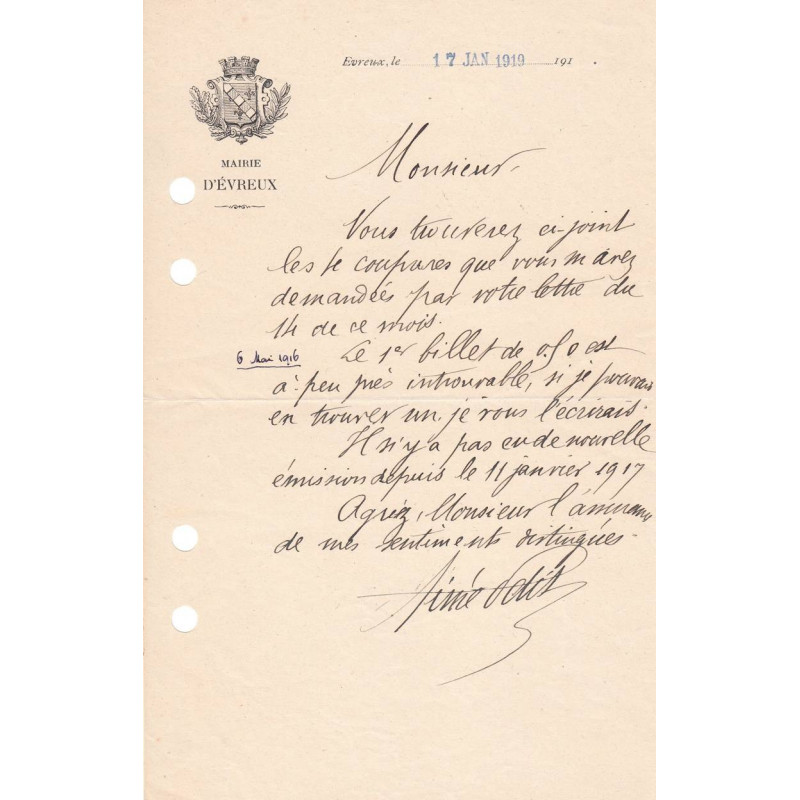 Evreux, le 17 JAN 1919 191 .
MAIRIE
D'ÉVREUX
Monsieur,
Vous trouverez ci-joint
les coupures que vous m'avez
demandées par votre lettre du
14 de ce mois.
6 Mai 1916
Le 1er billet de 0.50 est
à peu près introuvable, si je pouvais
en trouver un je vous l'écrirais.
Il n'y a pas eu de nouvelle
émission depuis le 11 janvier 1917
Agréez, Monsieur l'assurance
de mes sentiments distingués.
Aimé